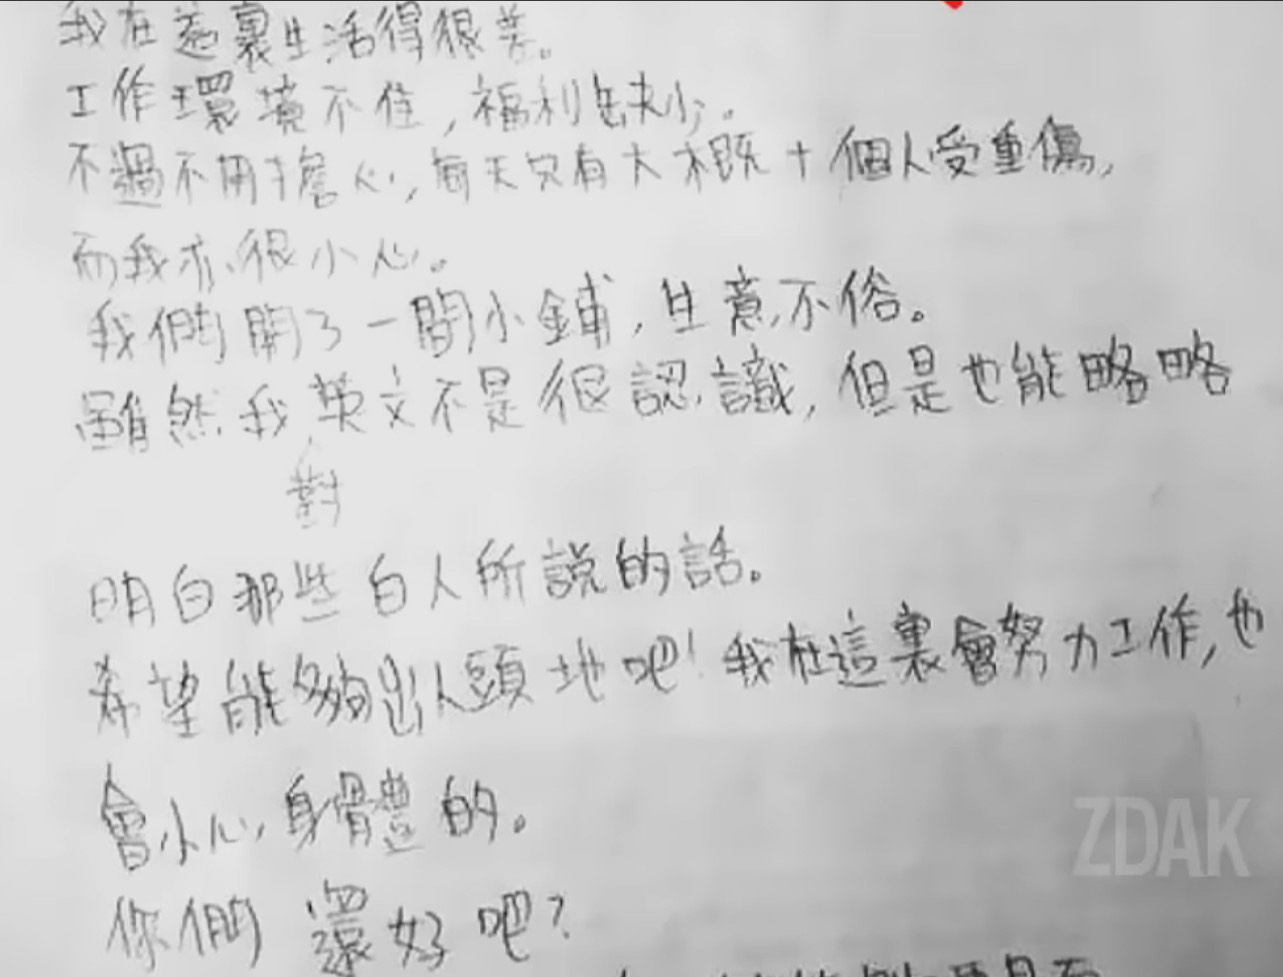 我在這裏生活得很差。
工作環境不佳，福利缺少。
不過不用擔心，每天只有大概十個人受重傷，
而我亦很小心。
我們開了一間小鋪，生意不俗。
雖然我英文不是很認識，但是也能略略
對
明白那些白人所說的話。
希望能夠出人頭地吧！我在這裏會努力工作，也
會小心身體的。
你們還好吧？
ZDAK